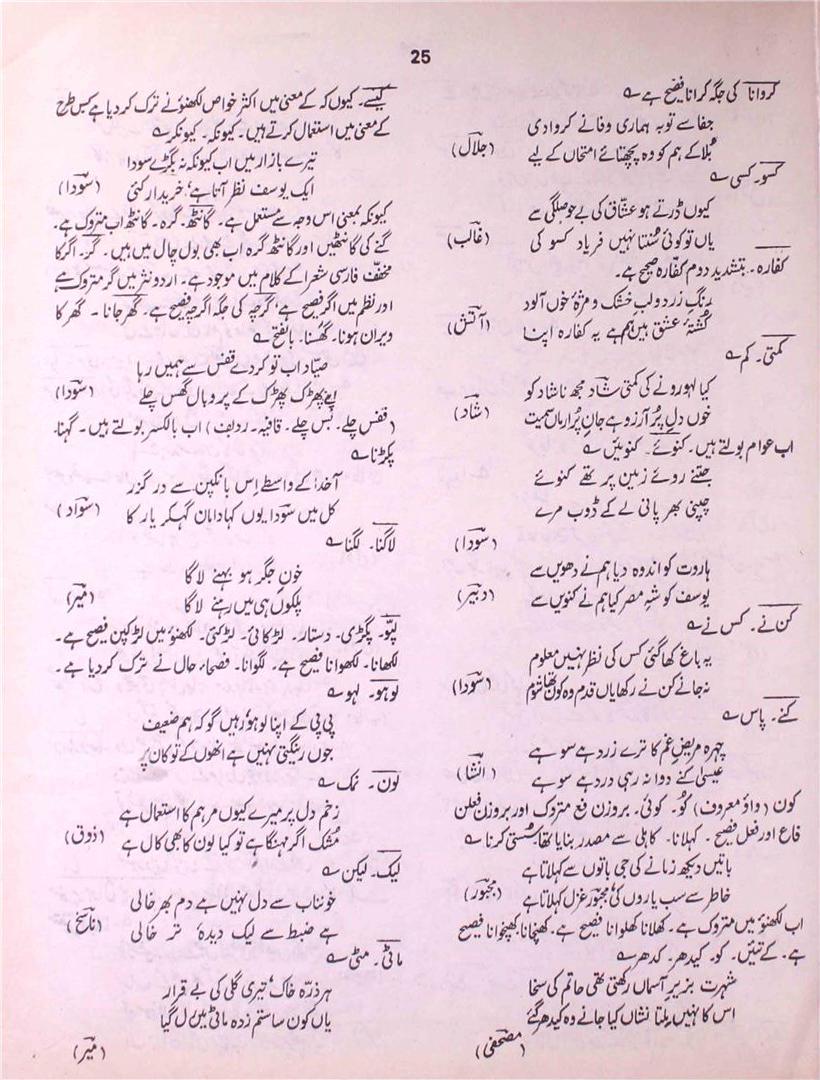 25
کروانا کی جگہ کرانا فصیح ہے ؎
جفا سے توبہ ہماری وفا نے کروا دی
بُلا کے ہم کو وہ پچھتائے امتحاں کے لیے (جلال)
کسو۔ کسی ؎
کیوں ڈرتے ہو عشّاق کی بے حوصلگی سے
یاں تو کوئی سُنتا نہیں فریاد کسو کی (غالب)
کفارہ۔ بتشدید دوم کفّارہ صحیح ہے۔
رنگِ زرد و لبِ خشک و مژۂ خوں آلود
کُشتۂ عشق ہیں ہم ہے یہ کفارہ اپنا (آتش)
کمتی۔ کم ؎
کیا لہو رونے کی کمتی شاد مجھ ناشاد کو
خوں دلِ پُر آرزو ہے جانِ پُر ارماں سمیت (شاد)
اب عوام بولتے ہیں۔ کنوئے۔ کنوئیں ؎
جتنے روئے زمین پر تھے کنوئے
چپنی بھر پانی لے کے ڈوب مرے (سودا)
ہاروت کو اندوہ دیا ہم نے دھویں سے
یوسف کو شہِ مصر کیا ہم نے کنویں سے (دبیر)
کن نے۔ کس نے ؎
یہ باغ کھا گئی کس کی نظر نہیں معلوم
نہ جانے کن نے رکھا یاں قدم وہ کون تھا شوم (سودا)
کنے۔ پاس ؎
چہرہ مریضِ غم کا ترے زرد ہے سو ہے
عیسیٰ کنے دوا نہ رہی درد ہے سو ہے (انشا)
کون (واؤ معروف) کُو۔ کوئی۔ بروزن فع متروک اور بروزن فعلن
فاع اور فعل فصیح۔ کہلانا۔ کاہلی سے مصدر بنایا تھا۔ سُستی کرنا ؎
باتیں دیکھ زمانے کی جی باتوں سے کہلاتا ہے
خاطر سے سب یاروں کی مجبور غزل کہلاتا ہے (مجبور)
اب لکھنؤ میں متروک ہے۔ کھلانا کھلوانا فصیح ہے۔ کھنچانا کھنچوانا فصیح
ہے۔ کے تئیں۔ کو۔ کیدھر۔ کدھر ؎
شہرت بزیرِ آسماں رکھتی تھی حاتم کی سخا
اس کا نہیں ملتا نشاں کیا جانے وہ کیدھر گئے (مصحفی)
کیسے۔ کیوں کہ کے معنی میں اکثر خواص لکھنؤ نے ترک کر دیا ہے کس طرح
کے معنی میں استعمال کرتے ہیں۔ کیونکہ۔ کیونکر ؎
تیرے بازار میں اب کیونکہ نہ بگڑے سودا
ایک یوسف نظر آتا ہے، خریدار کئی (سودا)
کیونکہ بمعنی اس وجہ سے مستعمل ہے۔ گانٹھ۔ گرہ۔ گانٹھ اب متروک ہے۔
گنے کی گانٹھیں اور گانٹھ گرہ اب بھی بول چال میں ہیں۔ گر۔ اگر کا
مخفف فارسی شعرا کے کلام میں موجود ہے۔ اردو نثر میں گر متروک ہے
اور نظم میں اگر فصیح ہے، گرچہ کی جگہ اگرچہ فصیح ہے۔ گھر جانا۔ گھر کا
ویران ہونا۔ گھُسنا۔ بالفتح ؎
صیّاد اب تو کر دے قفس سے ہمیں رہا
پھڑک پھڑک کے پر و بال گھس چلے (سودا)
(قفس چلے۔ بس چلے۔ قافیہ۔ ردیف) اب بالکسر بولتے ہیں۔ گہنا۔
پکڑنا ؎
آخدا کے واسطے اِس بانکپن سے در گزر
کل میں سودا یوں کہا دامان گہہ کر یار کا (سواد)
لاگنا۔ لگنا ؎
خونِ جگر ہو بہنے لاگا
پلکوں ہی میں رہنے لاگا (میر)
لپّو۔ پگڑی۔ دستار۔ لڑکائی۔ لڑکئی۔ لکھنؤ میں لڑکپن فصیح ہے۔
لکھانا۔ لکھوانا فصیح ہے۔ لگوانا۔ فصحاء حال نے ترک کر دیا ہے۔
لوہو۔ لہو ؎
پی پی کے اپنا لوہو رہیں گو کہ ہم ضعیف
جوں رینگتی نہیں ہے انھوں کے تو کان پر
لون۔ نمک ؎
زخم دل پر میرے کیوں مرہم کا استعمال ہے
مُشک اگر مہنگا ہے تو کیا لون کا بھی کال ہے (ذوق)
لیک۔ لیکن ؎
خونناب سے دل نہیں ہے دم بھر خالی
ہے ضبط سے لیک دیدۂ تر خالی (ناسخ)
ماٹی۔ مٹی ؎
ہر ذرّہ خاک، تیری گلی کی بے قرار
یاں کون سا ستم زدہ ماٹی میں ل گیا (میر)